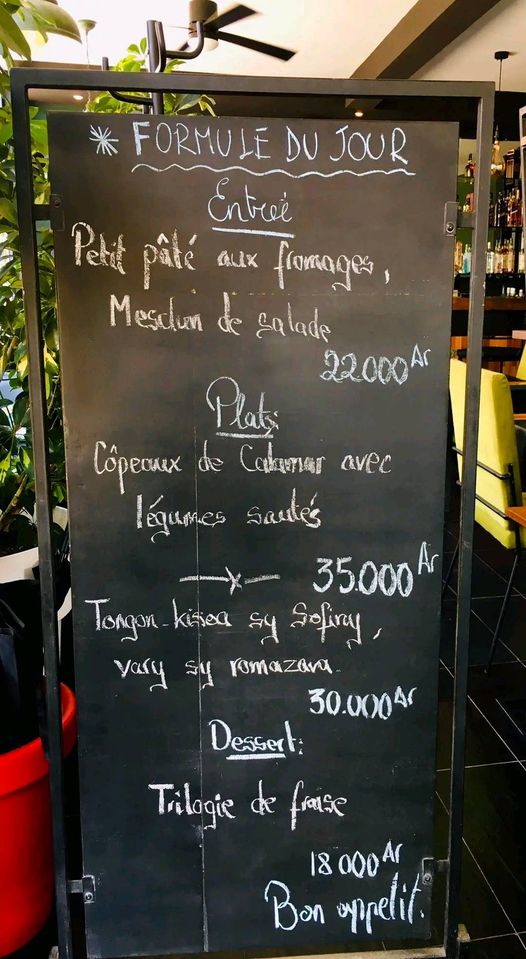 * FORMULE DU JOUR
Entrée
Petit pâté aux fromages,
Mesclun de salade
22.000 Ar
Plats:
Côpeaux de Calamar avec
légumes sautés
35.000 Ar
Tongon-kisoa sy Sofiny,
vary sy romazava
30.000 Ar
Dessert:
Trilogie de fraise
18 000 Ar
Bon appetit.